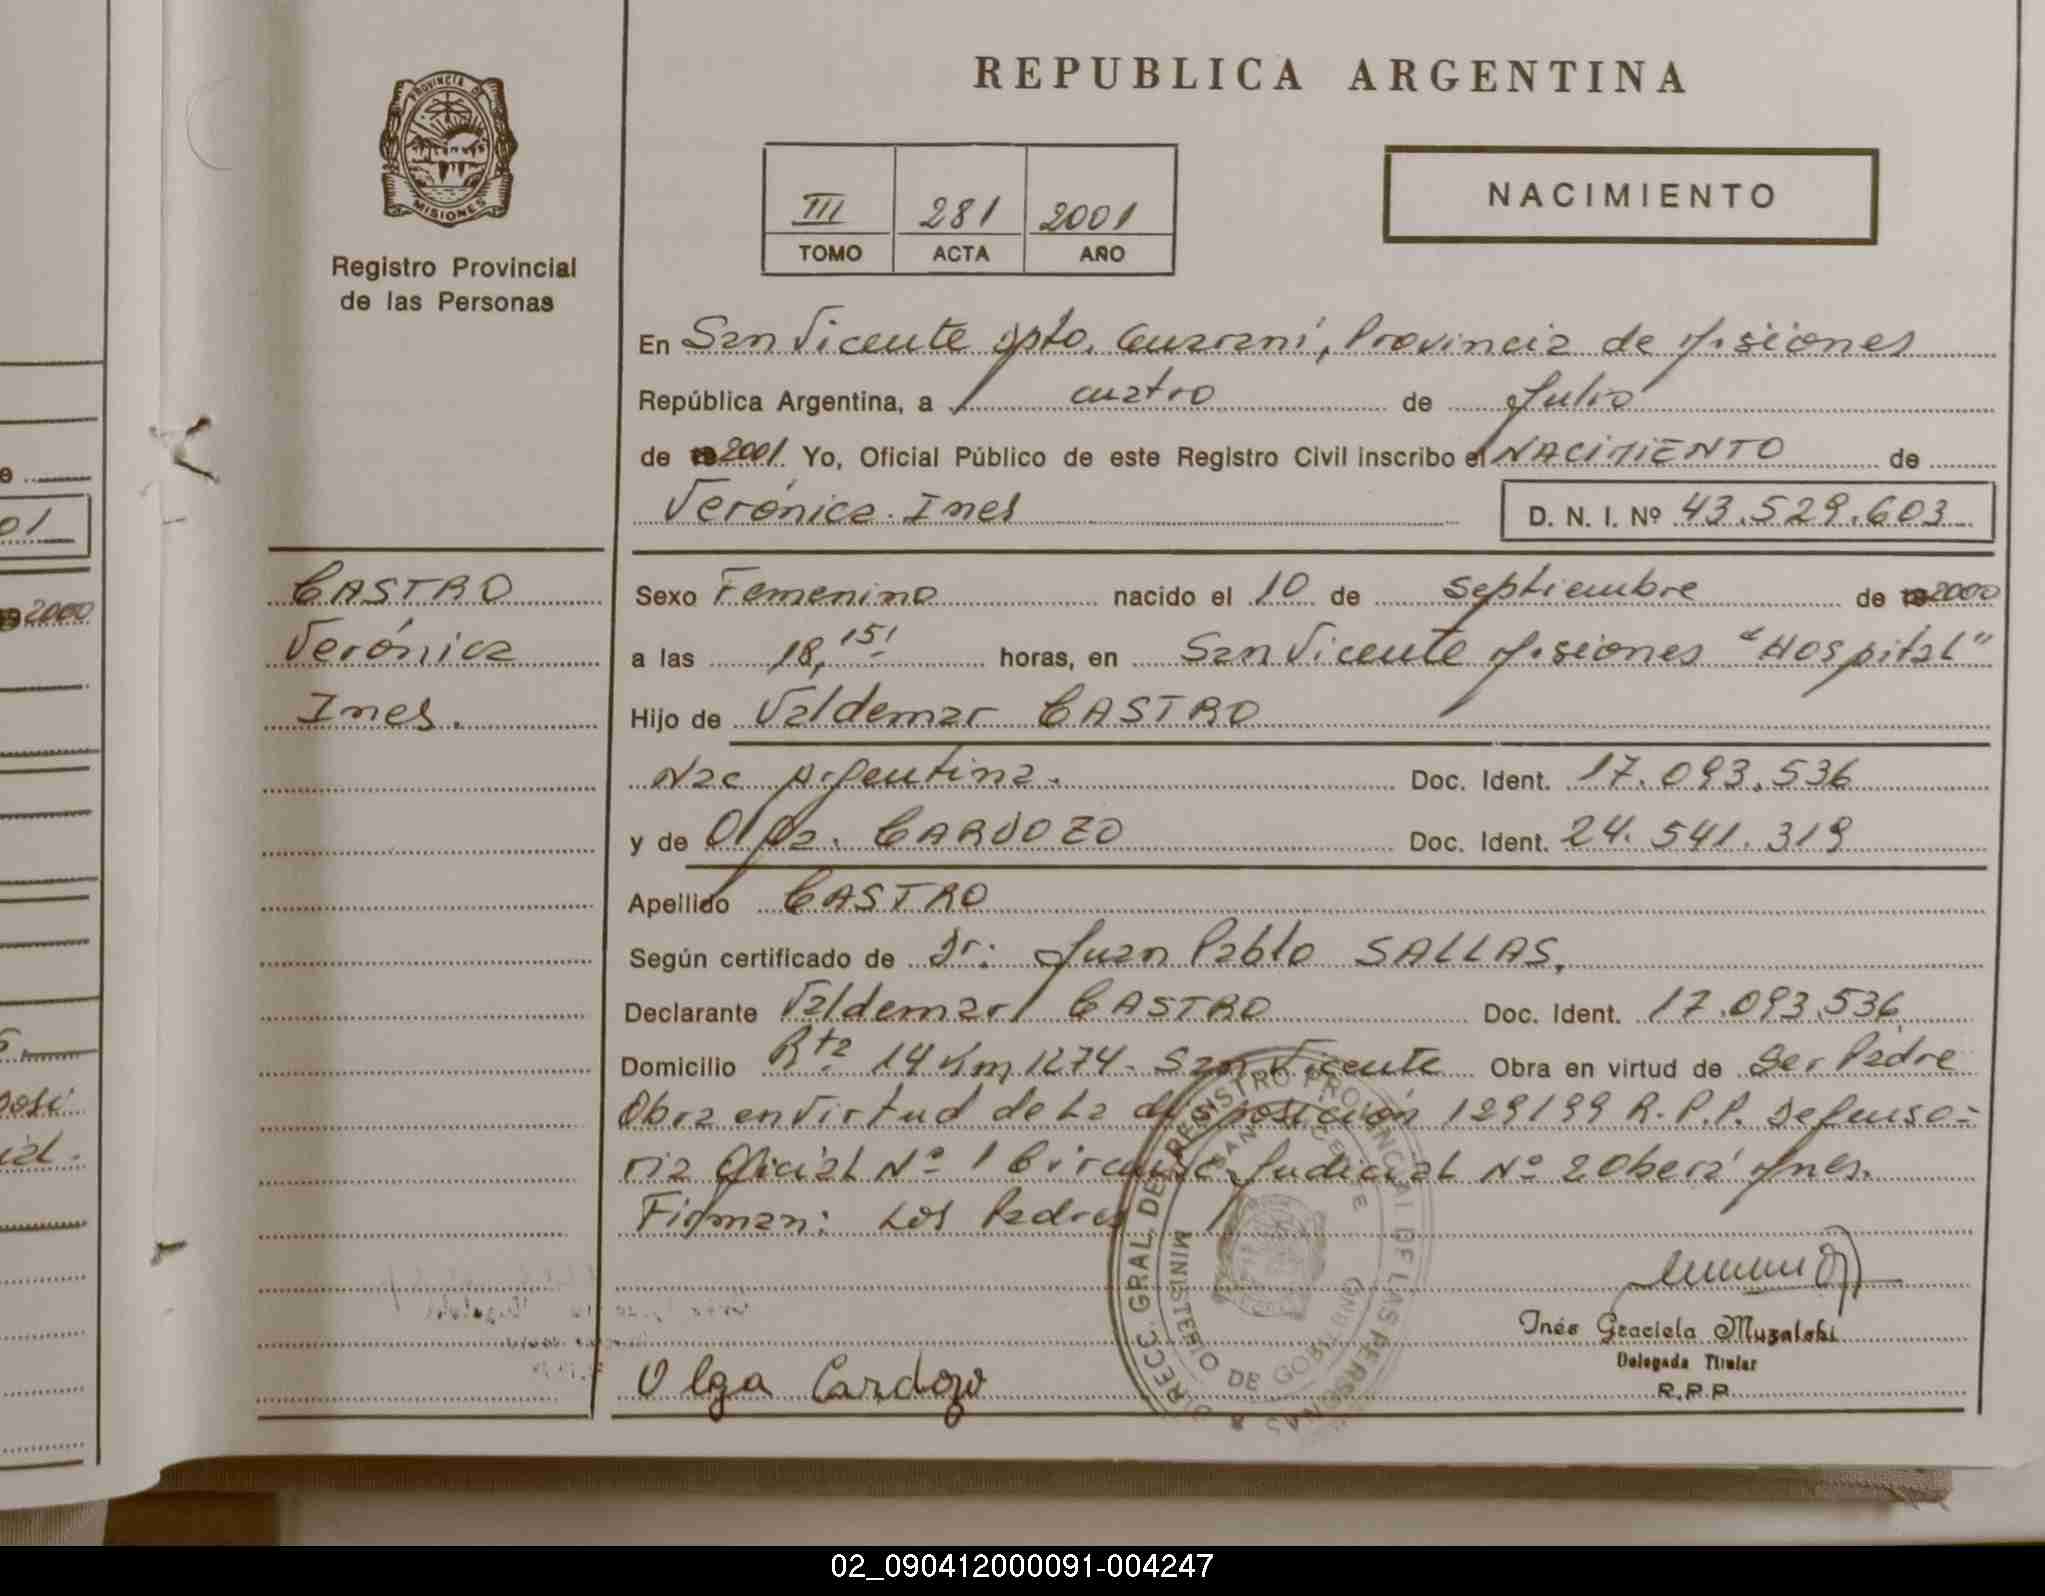 REPUBLICA ARGENTINA
PROVINCIA DE
MISIONES
Registro Provincial
de las Personas
III 281 2001
TOMO ACTA AÑO
NACIMIENTO
En San Vicente Dpto. Guaraní, Provincia de Misiones
República Argentina, a cuatro de Julio
de 2001 Yo, Oficial Público de este Registro Civil inscribo el NACIMIENTO de
Verónica Ines D. N. I. Nº 43.529.603
CASTRO
Verónica
Ines.
Sexo Femenino nacido el 10 de septiembre de 2000
a las 18,15! horas, en San Vicente Misiones "Hospital"
Hijo de Valdemar CASTRO
Nac Argentina. Doc. Ident. 17.093.536
y de Olga CARDOZO Doc. Ident. 24.541.319
Apellido CASTRO
Según certificado de Dr: Juan Pablo SALLAS,
Declarante Valdemar CASTRO Doc. Ident. 17.093.536
Domicilio Rta. 14 Km 1274 - San Vicente Obra en virtud de Ser Padre
Obra en virtud de La disposición 129/99 R.P.P. Defenso=
ria Oficial Nº 1 Circunsc. Judicial Nº 2 Oberá Mnes.
Firman: Los Padres
DIRECC. GRAL. DEL REGISTRO PROVINCIAL DE LAS PERSONAS
SAN VICENTE
MINISTERIO DE GOBIERNO
Inés Graciela Muzalski
Delegada Titular
R.P.P.
Olga Cardozo
02_090412000091-004247